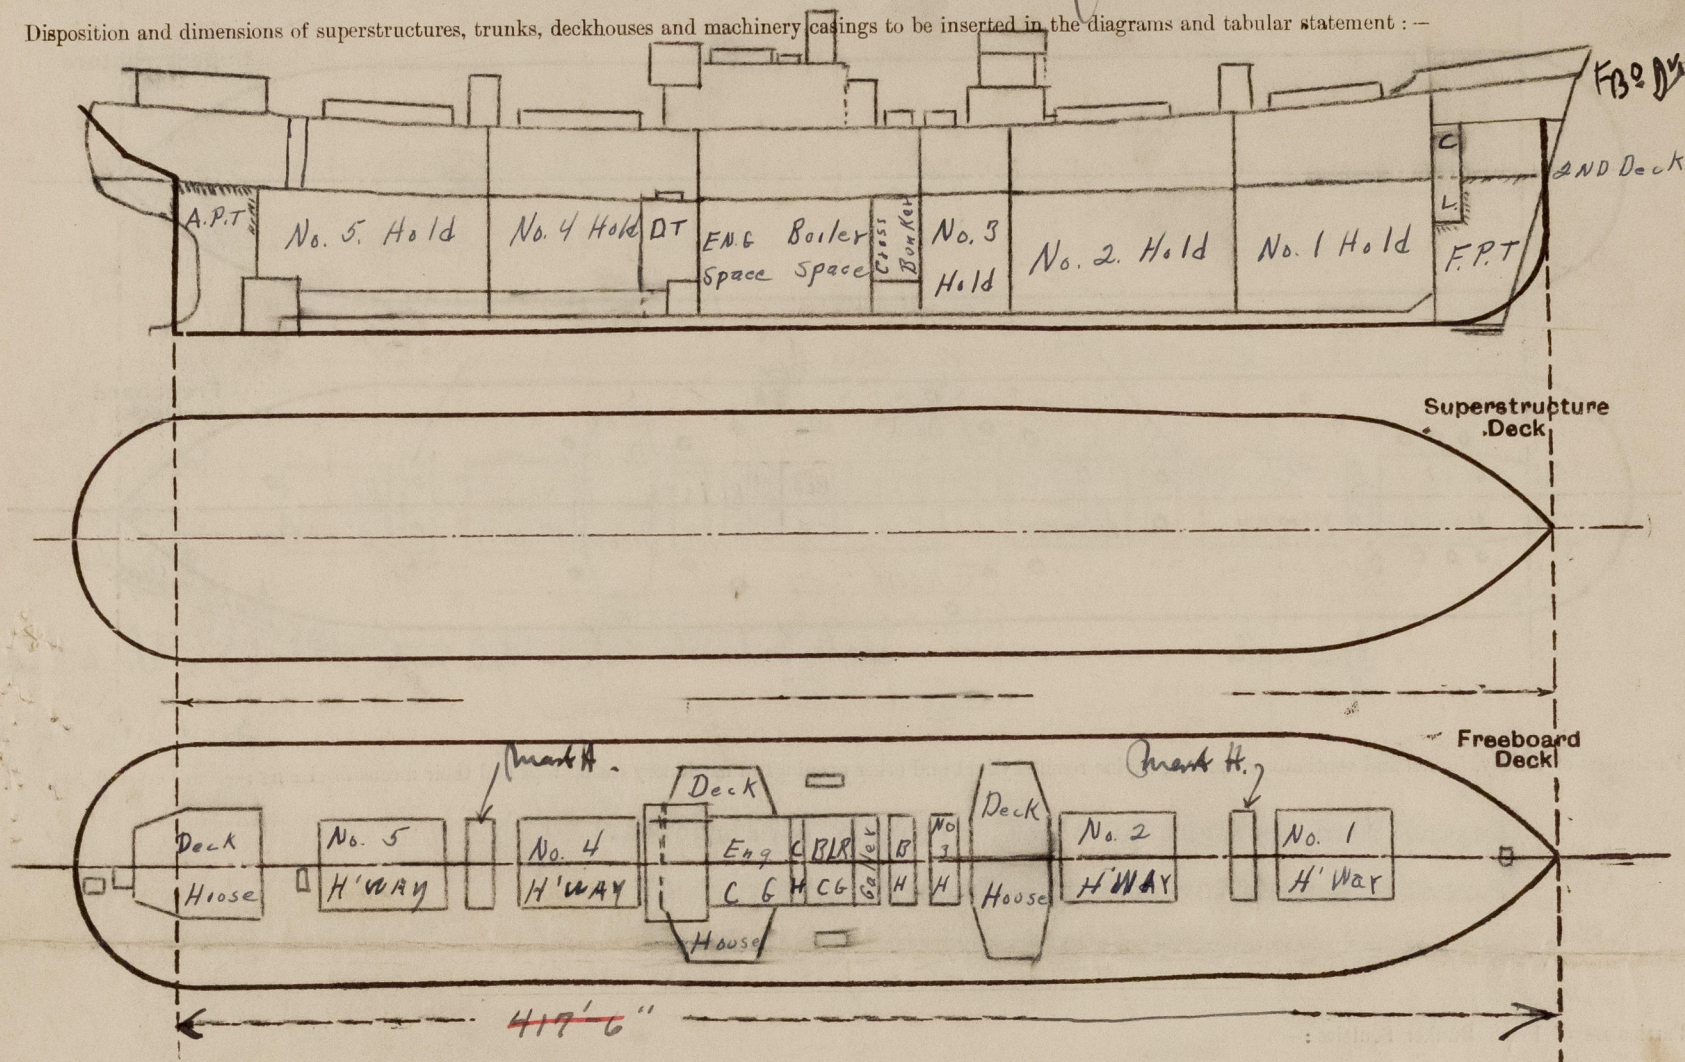 Disposition and dimensions of superstructures, trunks, deckhouses and machinery casings to be inserted in the diagrams and tabular statement : —
FBD Dk
2ND Deck
C
L.
A.P.T
No. 5. Hold
No. 4 Hold
DT
ENG
Space
Boiler
Space
Cross
Bunker
No. 3
Hold
No. 2. Hold
No. 1 Hold
F.P.T
Superstructure
Deck
Freeboard
Deck
Mast H.
Mast H.
Deck
House
No. 5
H'WAY
No. 4
H'WAY
Deck
House
Eng
C G
C
H
BLR
CG
Galley
B
H
No
3
H
Deck
House
No. 2
H'WAY
No. 1
H'Way
417'-6"